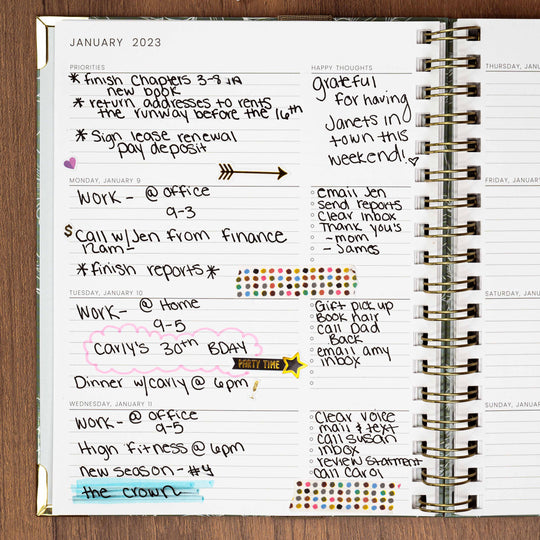 JANUARY 2023
PRIORITIES
* finish Chapters 3-8 in
new book
* return addresses to rents
the runway before the 16th
* Sign lease renewal
pay deposit
HAPPY THOUGHTS
grateful
for having
Janets in
town this
weekend!
MONDAY, JANUARY 9
Work - @ office
9-3
$ Call w/Jen from finance
12am-
* finish reports *
email Jen
Send reports
Clear inbox
Thank you's
- mom
- James
TUESDAY, JANUARY 10
Work - @ Home
9-5
Carly's 30th BDAY
PARTY TIME
Dinner w/carly @ 6pm!
Gift pick up
Book Hair
Call Dad
Back
email amy
inbox
WEDNESDAY, JANUARY 11
Work - @ office
9-5
High Fitness @ 6pm
new season - #4
the crown
Clear voice
mail & text
call susan
inbox
review statment
call Carol
THURSDAY, JAN
FRIDAY, JANUA
SATURDAY, JAN
SUNDAY, JANU